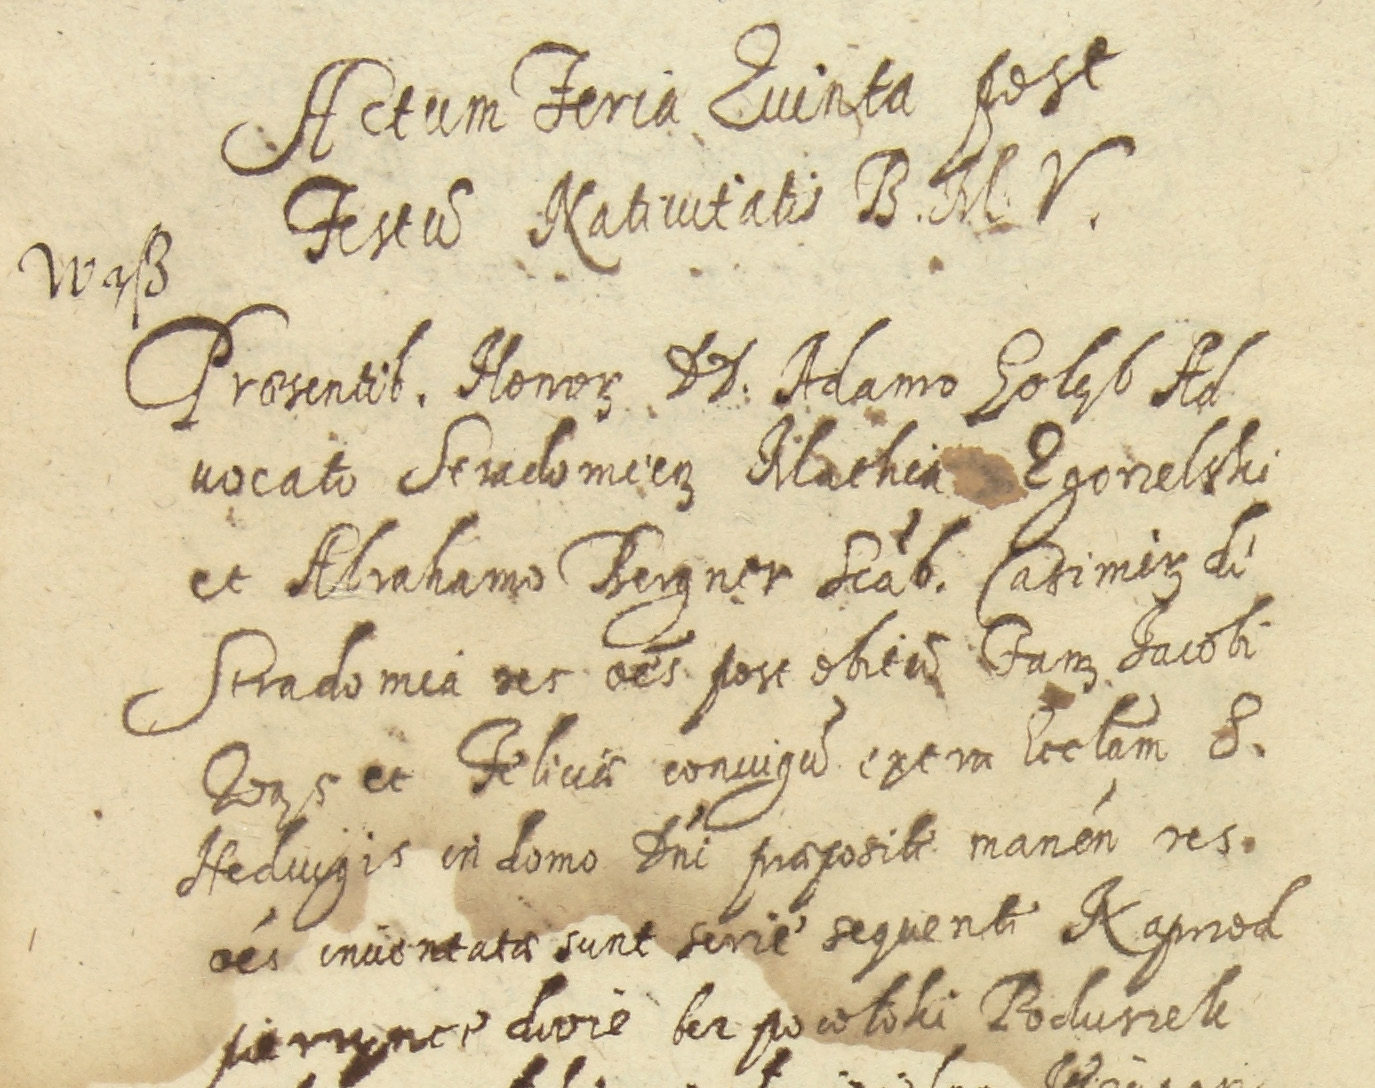 Actum Feria Quinta post
Festũ Natiuitatis B. M. V.
Præsentib. Honor DD. Adamo Golęb Ad
uocato Stradomien Mathia Zgorzelski
et Abrahamo Bergner Scab. Casimir di
Stradomia res oẽs post obitũ Fam Jacobi
et Feliciæ coniugũ extra Eccłam S.
Heduigis in domo Dni præpositi manẽn res.
oẽs inuentatæ sunt serie sequenti Naprzod
pierzynẽ dwie bez powłoki Poduszek